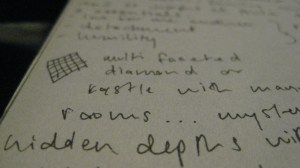 detachment
- humility
multi faceted
diamond or
kastle with man
rooms... myste
hidden depths wit